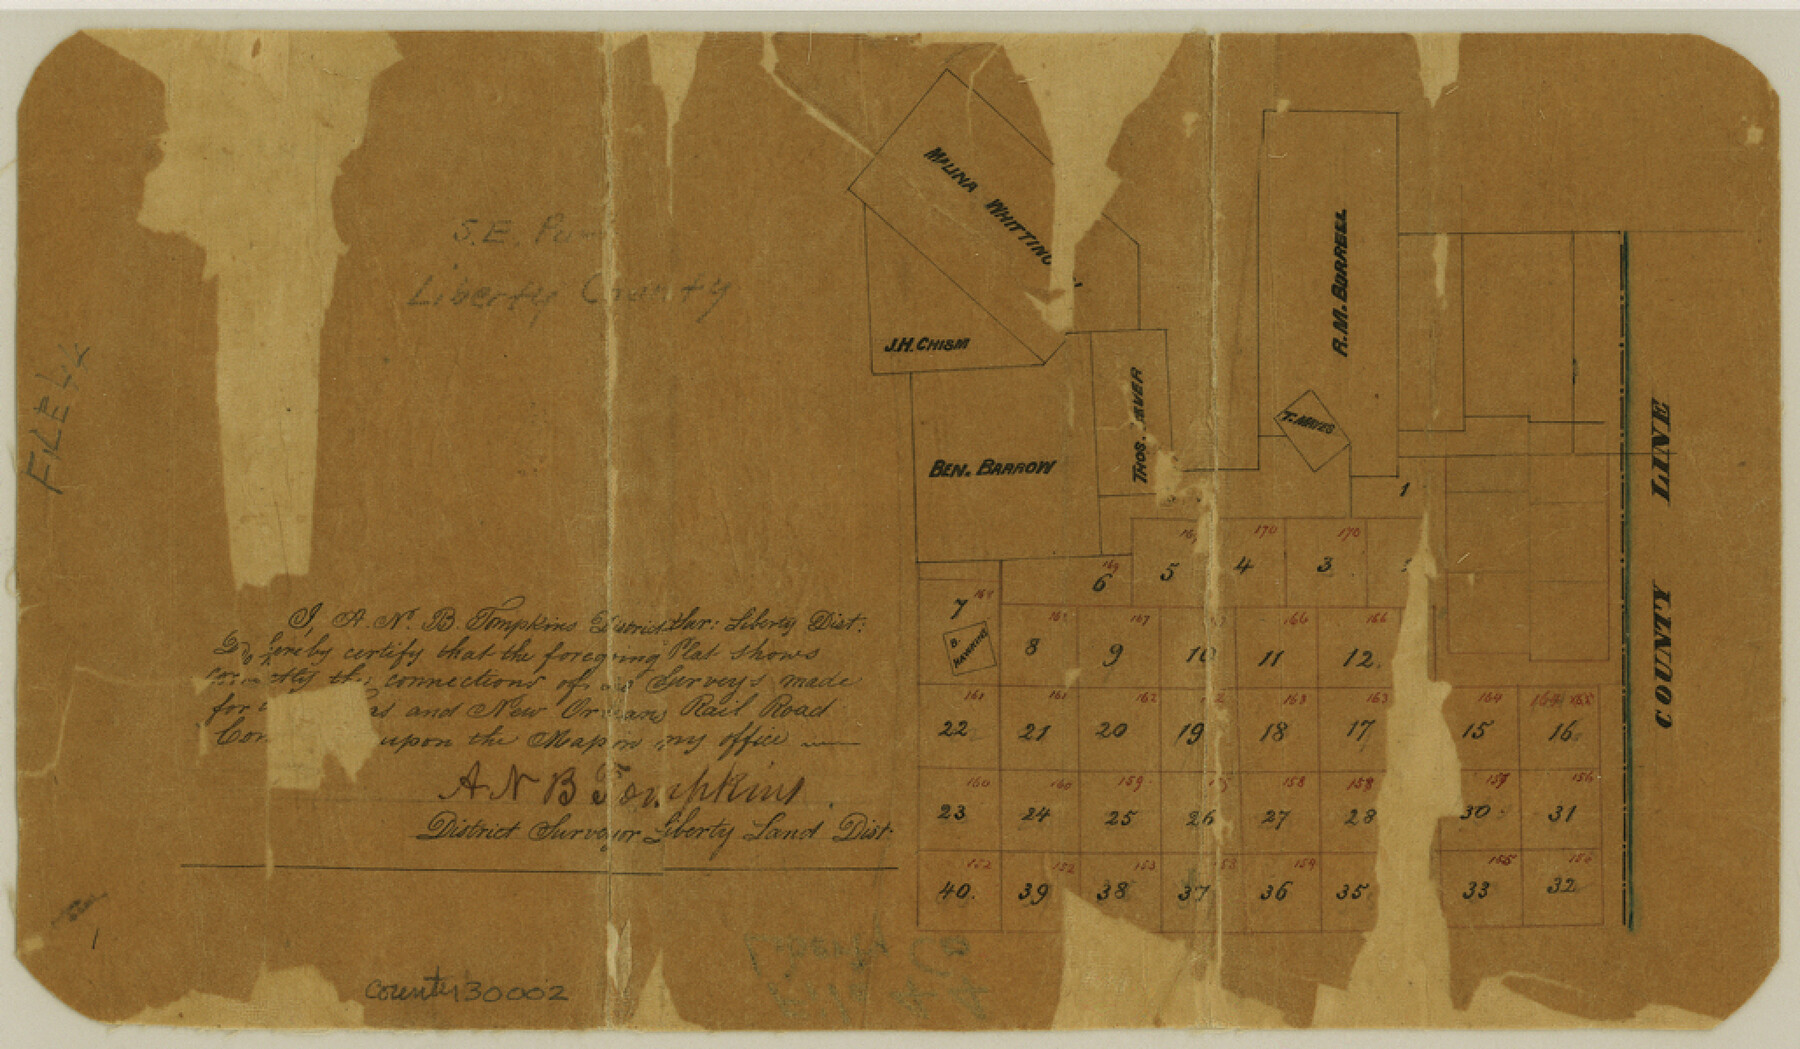 S.E. Part
Liberty County
FILE
I, A. N. B. Tompkins District Sur: Liberty Dist:
Do hereby certify that the foregoing Plat shows
the connections of Surveys made
for and New Orleans Rail Road
upon the Map in my office
A N B Tompkins
District Surveyor Liberty Land Dist.
counter 30002
1
MALINA WHITTING
J.H. CHISM
BEN. BARROW
THOS.
R.M. BORRELL
T. MAZES
COUNTY LINE
1
169 170 170
6 5 4 3
164
7
B. HAWKINS
167 166 166
8 9 10 11 12.
161 161 162 163 163 164 164 165
22 21 20 19 18 17 15 16.
160 160 159 158 158 157 156
23 24 25 26 27 28 30 31
152 152 153 153 154 155 156
40. 39 38 37 36 35 33 32
Liberty Co